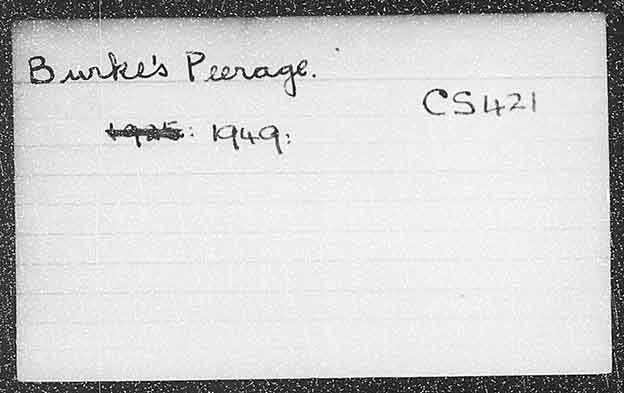 Burke's Peerage.
CS421
1925: 1949: